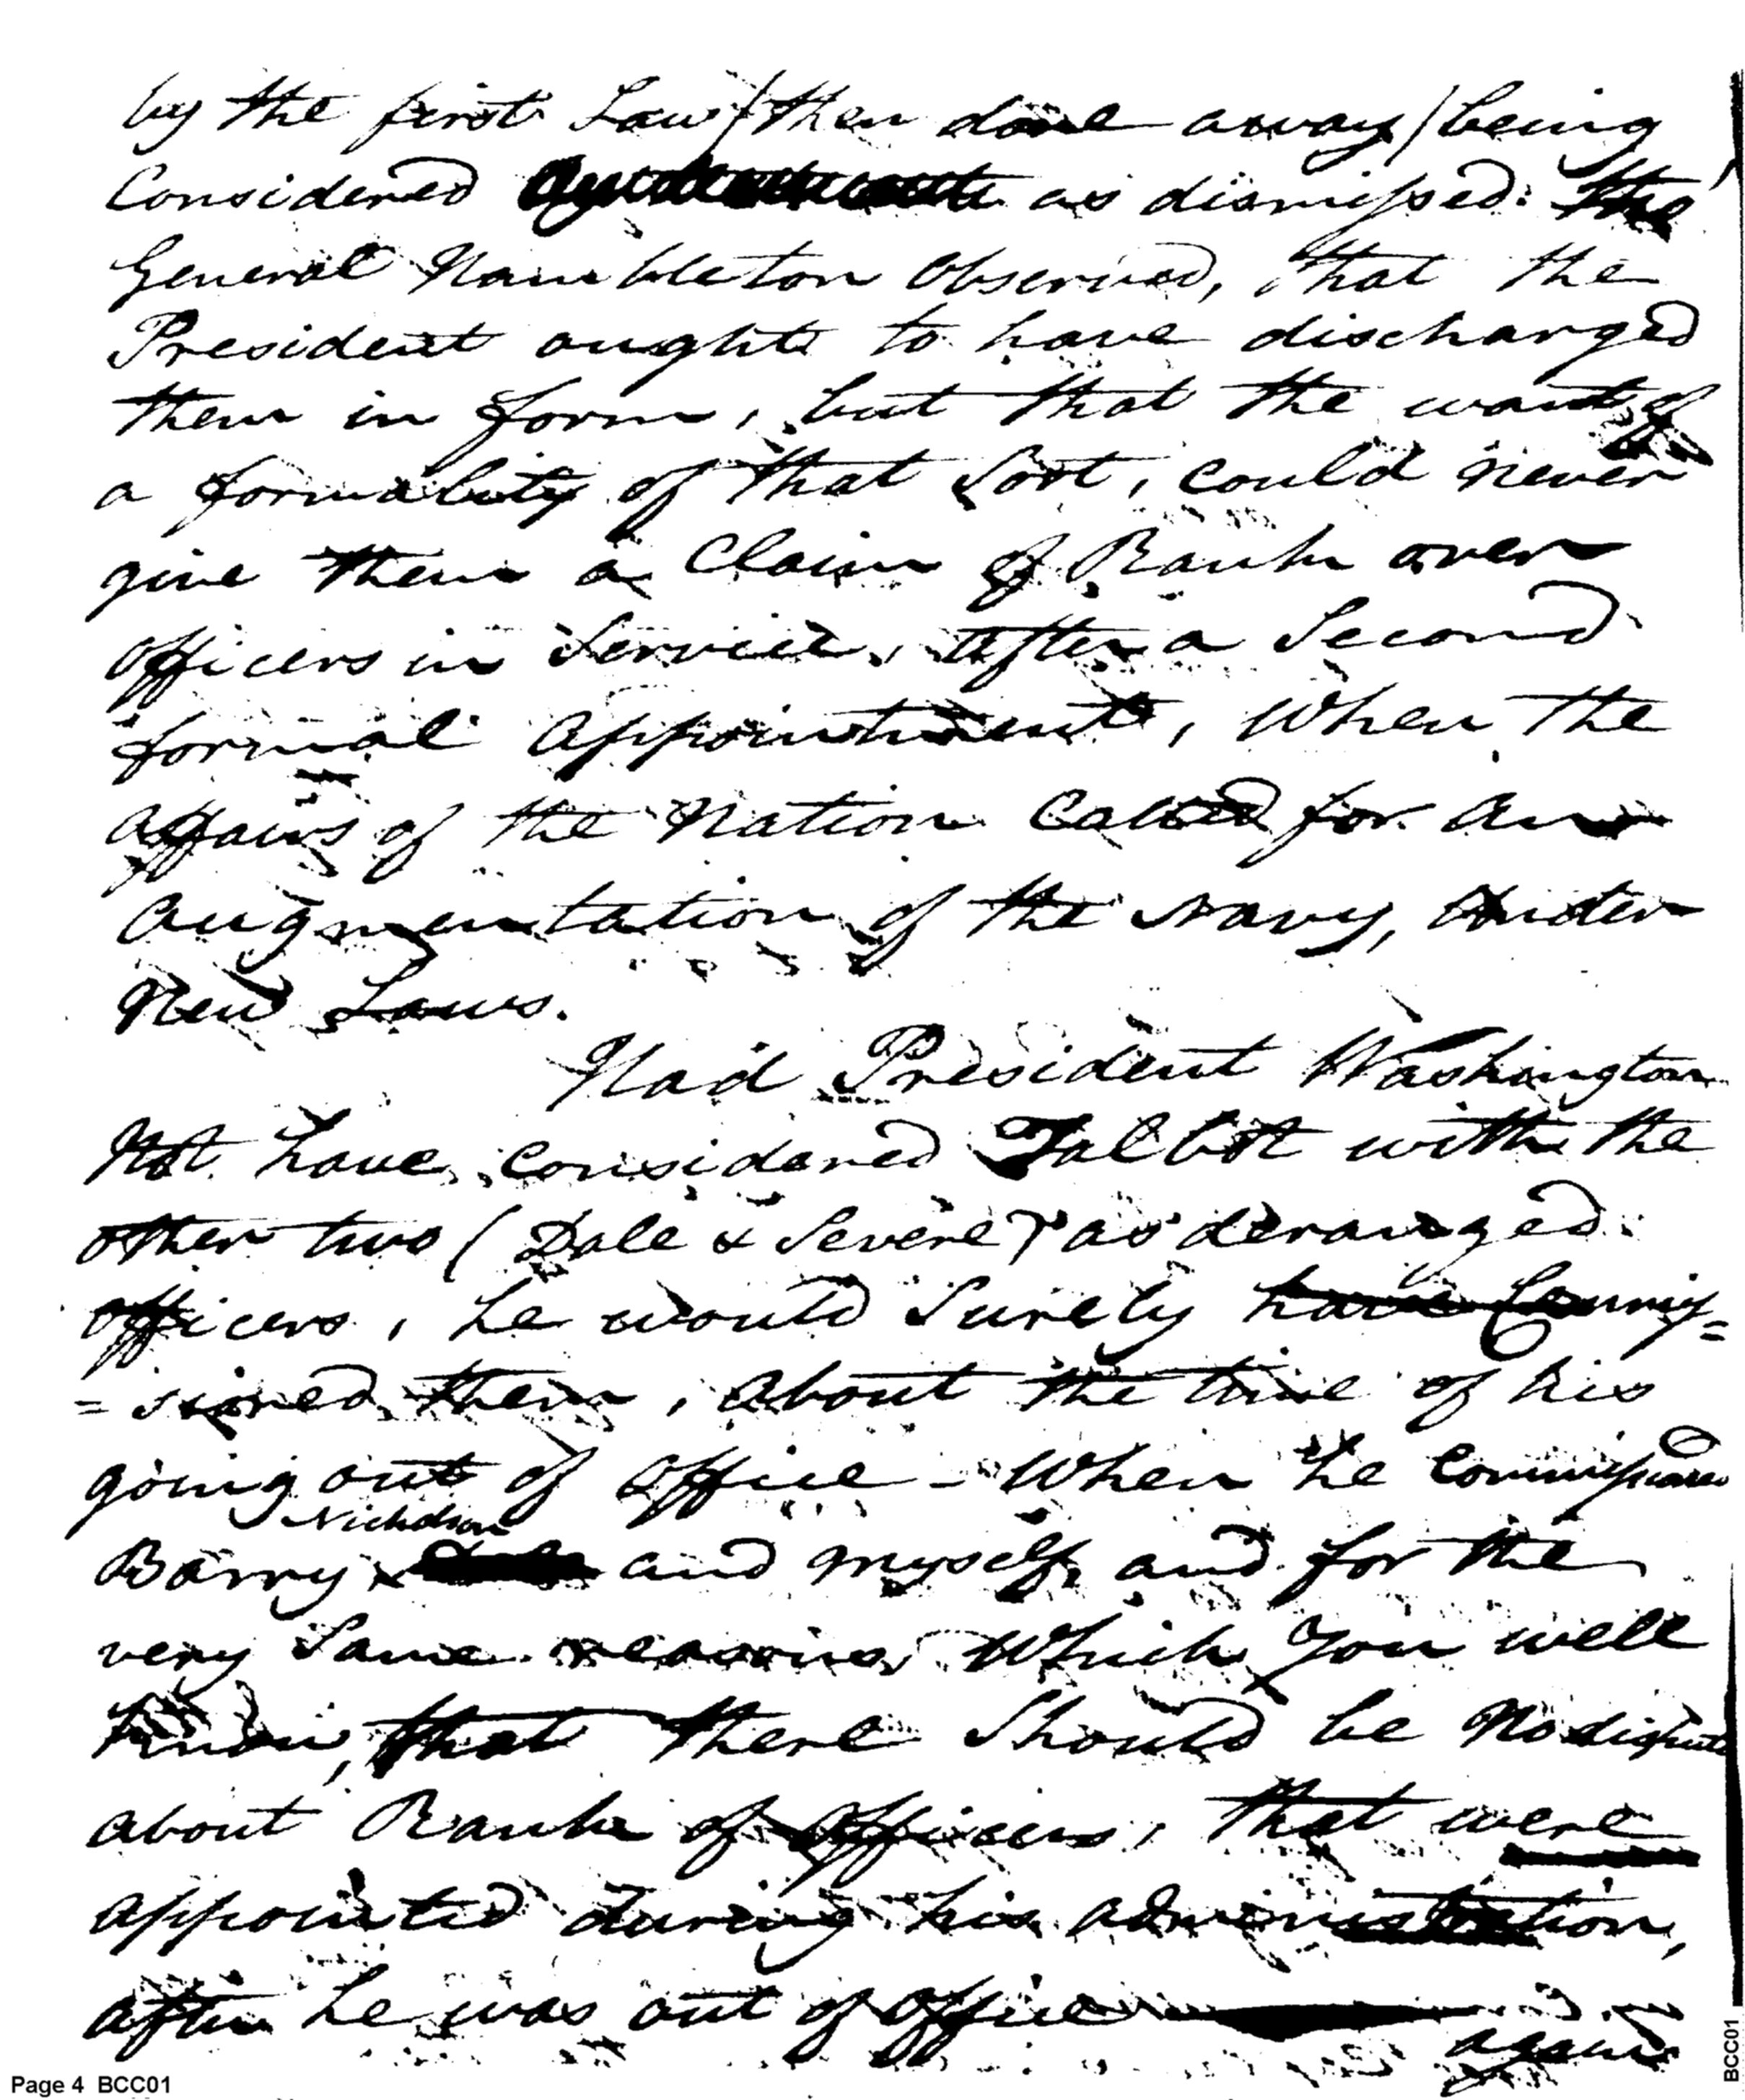 by the first Law / then done away / being
Considered as dismissed: the
General Hambleton Observed, that the
President ought to have discharged
them in form, but that the want of
a formality of that Sort, could never
give them a Claim of Rank over
officers in Service, after a Second
formal appointment, When the
affairs of the Nation Called for an
augmentation of the Navy, Under
New Laws.
Had President Washington
Not have considered Talbot with the
other two (Dale & Severe) as deranged
officers, he would Surely have Commis=
=sioned them, about the time of his
going out of office - When he Commissioned
Nicholson
Barry & and myself, and for the
very Same reasons Which You well
know, that there Should be No dispute
about Rank of officers, that were
appointed during his administration,
after he was out of office
again
Page 4 BCC01
BCC01